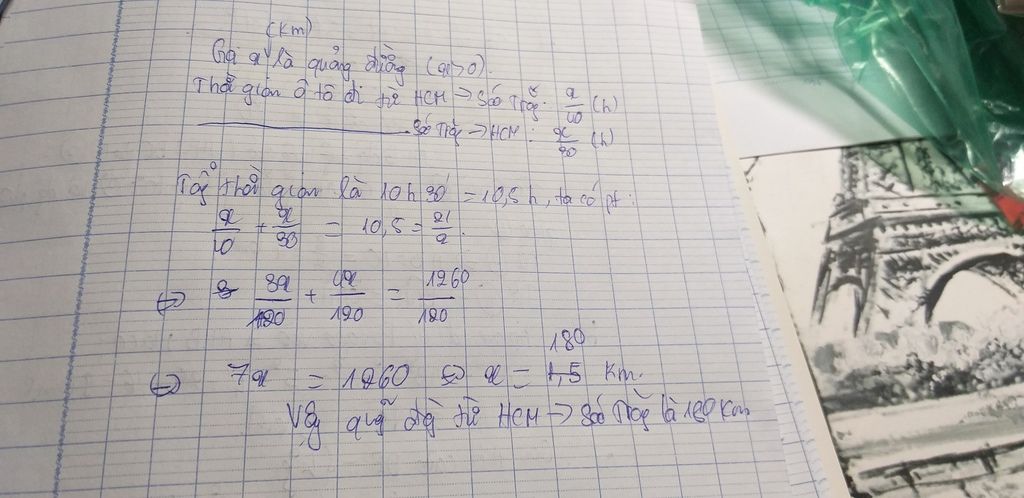 (km)
Gọi x là quãng đường (x>0).
Thời gian ô tô đi từ HCM → Sóc Trăng: x/40 (h)
Sóc Trăng → HCM : x/30 (h)
Tổng thời gian là 10h30' = 10,5h, ta có pt:
x/40 + x/30 = 10,5 = 21/2.
⇔ 3x/120 + 4x/120 = 1260/120
180
⇔ 7x = 1260 ⇔ x = km.
Vậy quãng đường từ HCM → Sóc Trăng là 180 Km